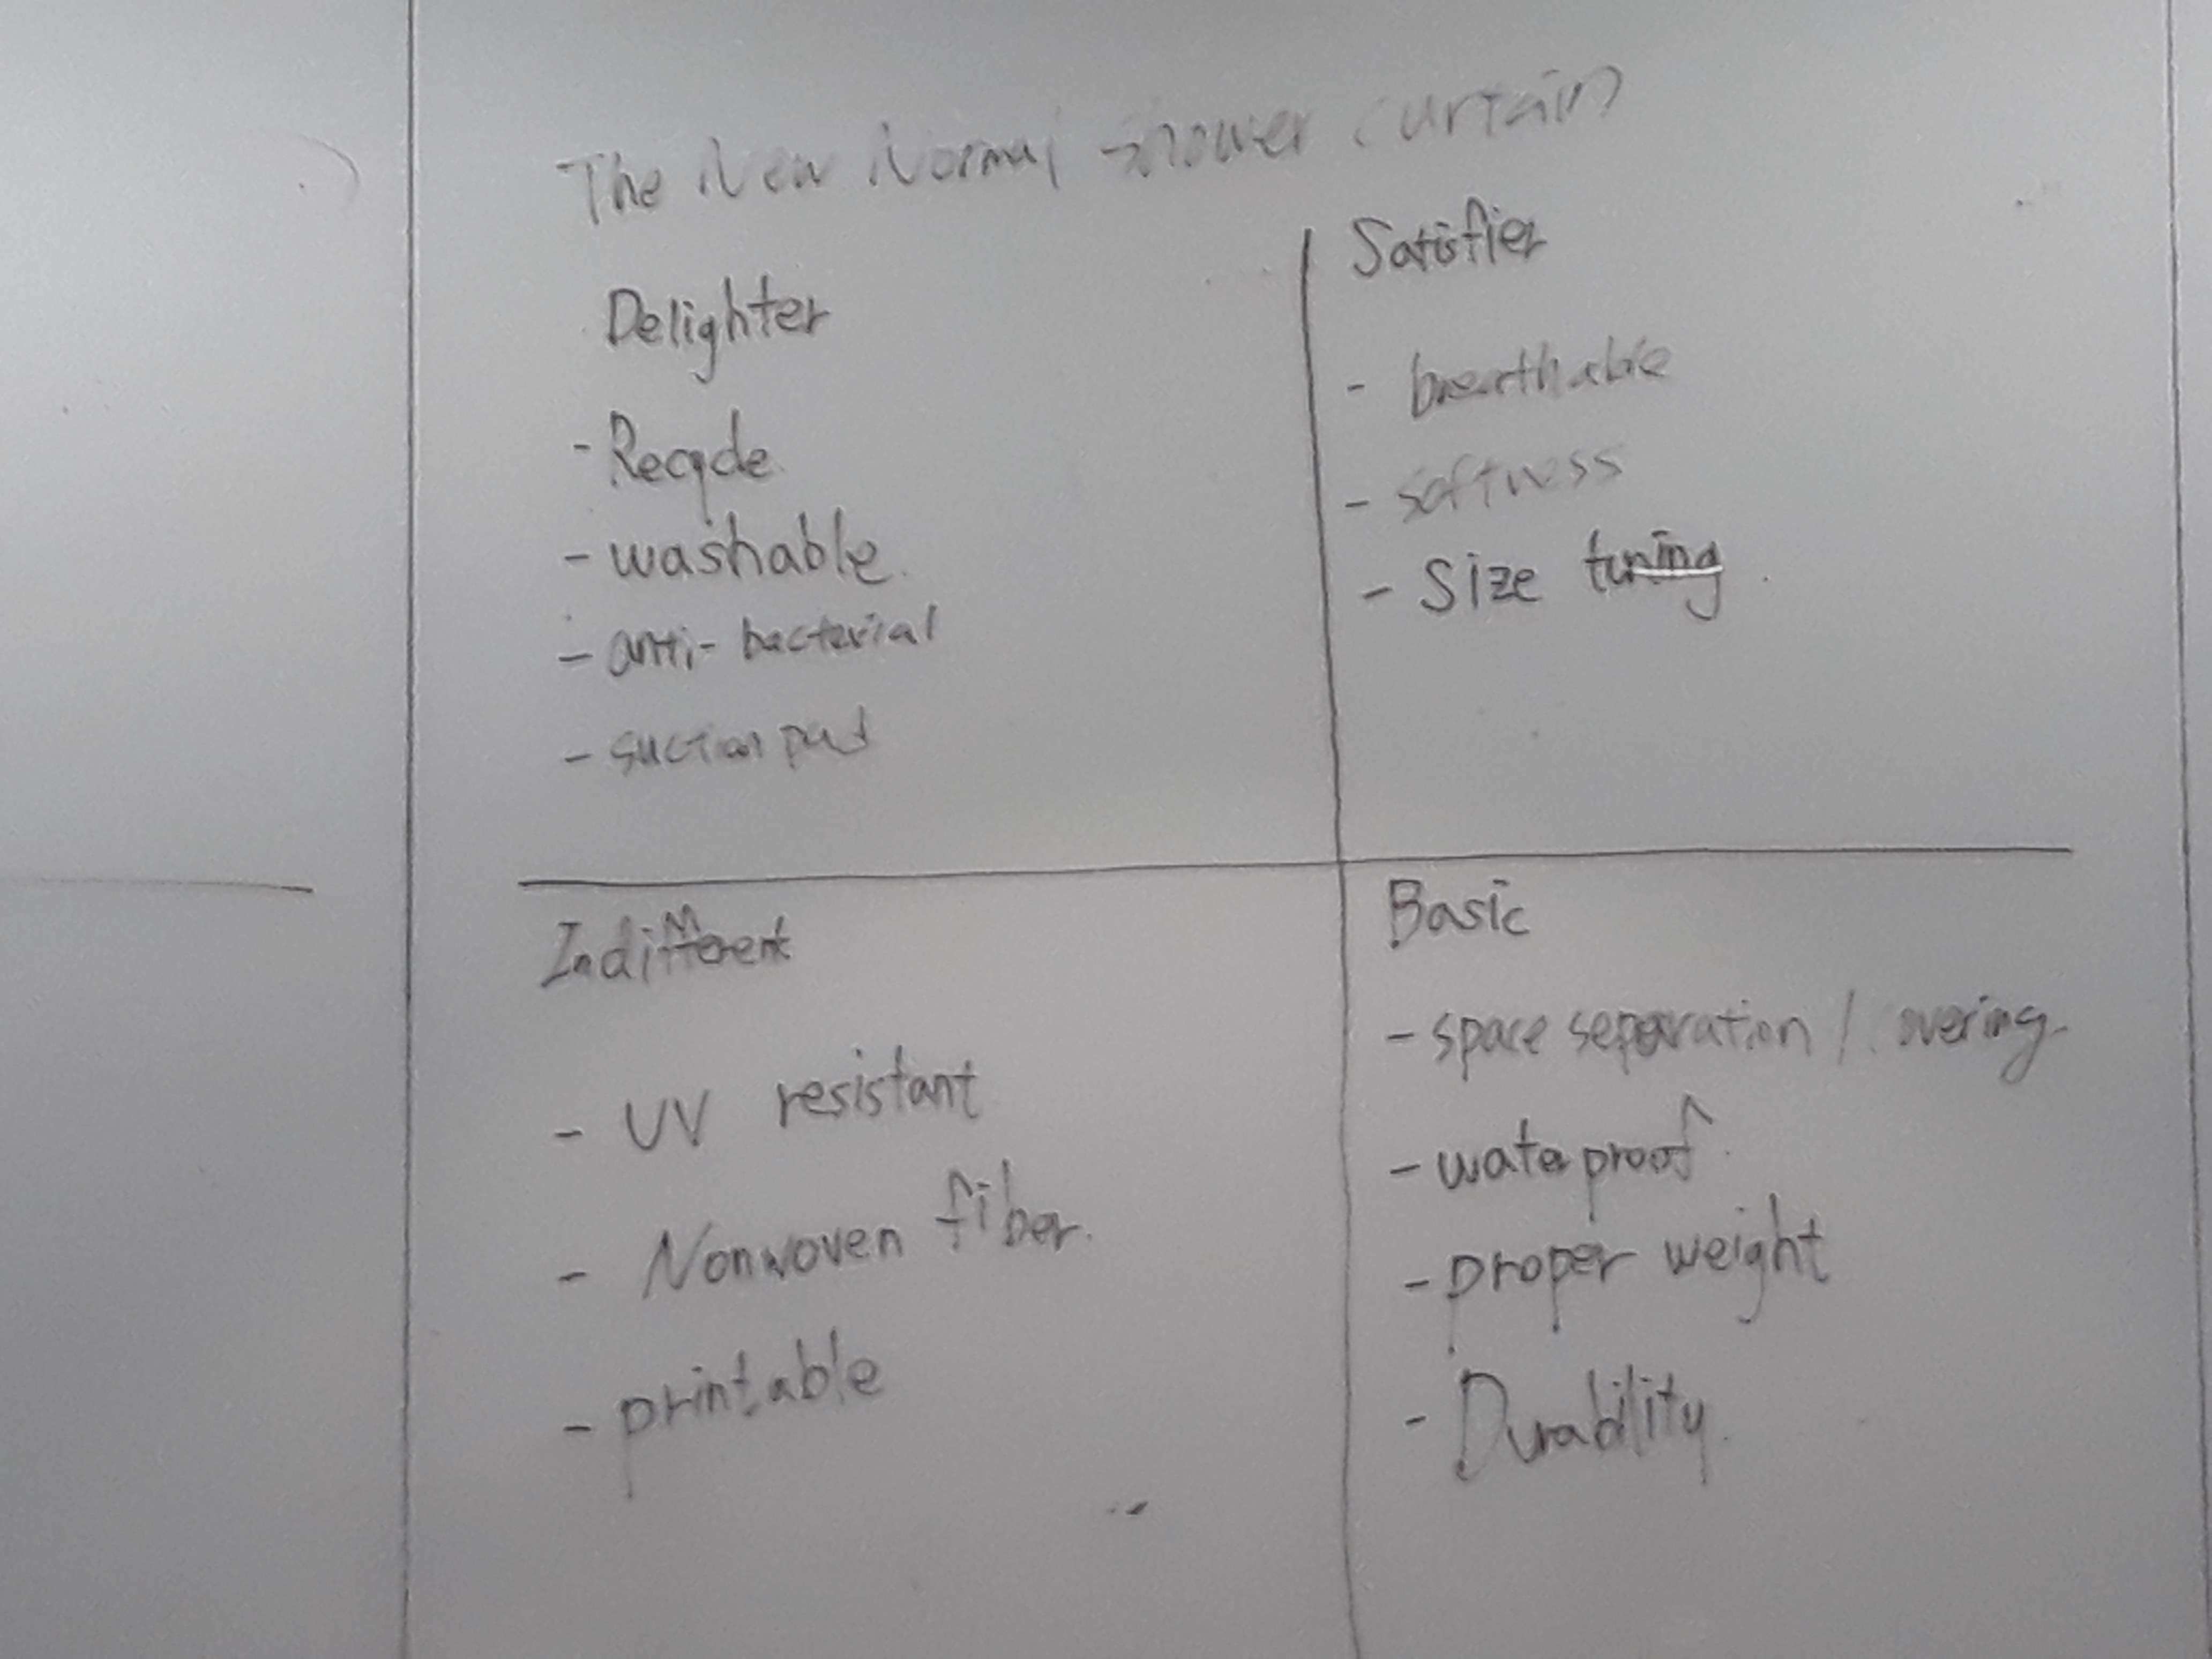 The New Normal shower curtain
Delighter
- Recycle
- washable.
- anti-bacterial
- suction pad
Satisfier
- breathable
- softness
- Size tuning
Indifferent
- UV resistant
- Nonwoven fiber.
- printable
Basic
- space separation / covering
- waterproof
- proper weight
- Durability.